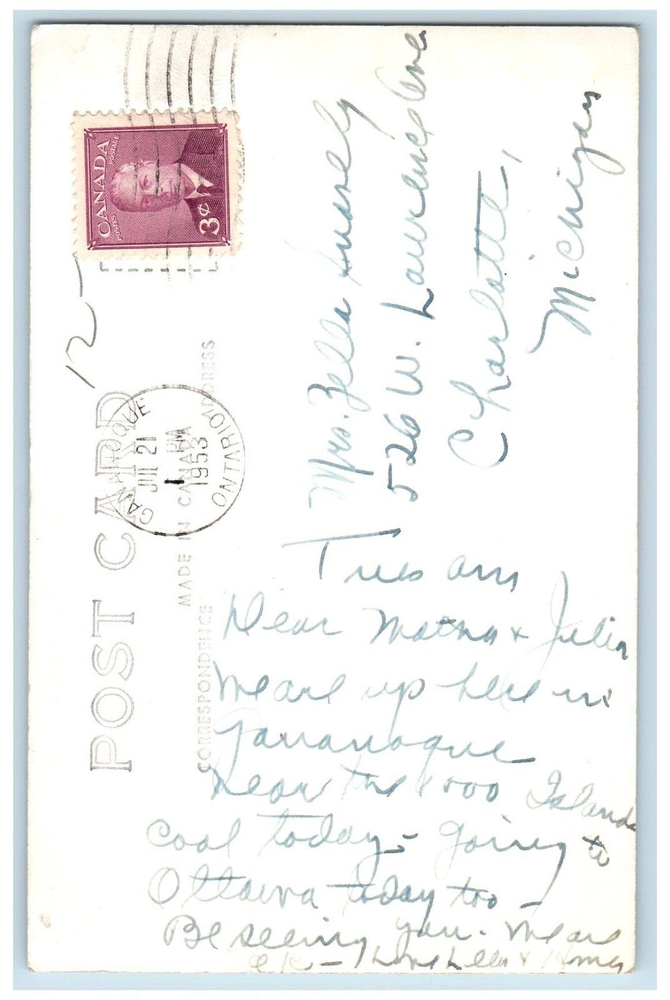 CANADA
POSTES POSTAGE
3¢
12
POST CARD
CORRESPONDENCE
MADE IN CANADA
ADDRESS
GANANOQUE
JUL 21
PM
1953
ONTARIO
Mrs. Zella
526 W. Lawrence Ave
Charlotte,
Michigan
Tues am
Dear & Julia
We are up here in
Gananoque
near the 1000 Islands
cool today - going to
Ottawa today too -
Be seeing you. We are
OK - Love &